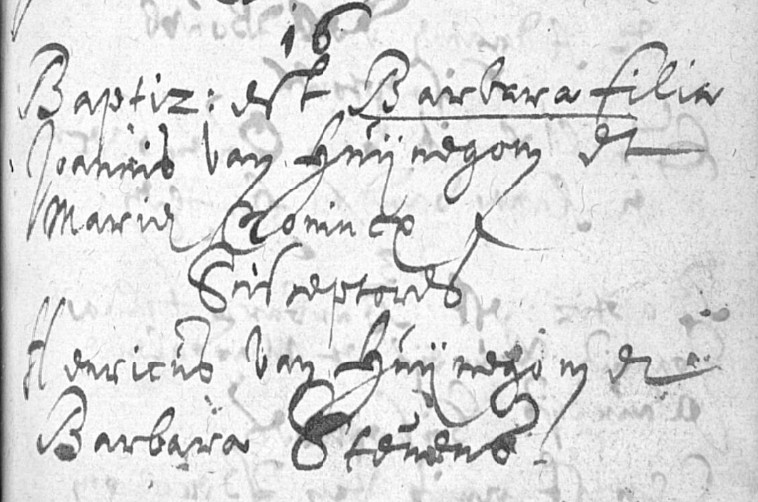 16
Baptiz: est Barbara filia
Joannis van Huijnegom et
Mariæ Conincx
Susceptores
Henricus van Huijnegom et
Barbara Stevens